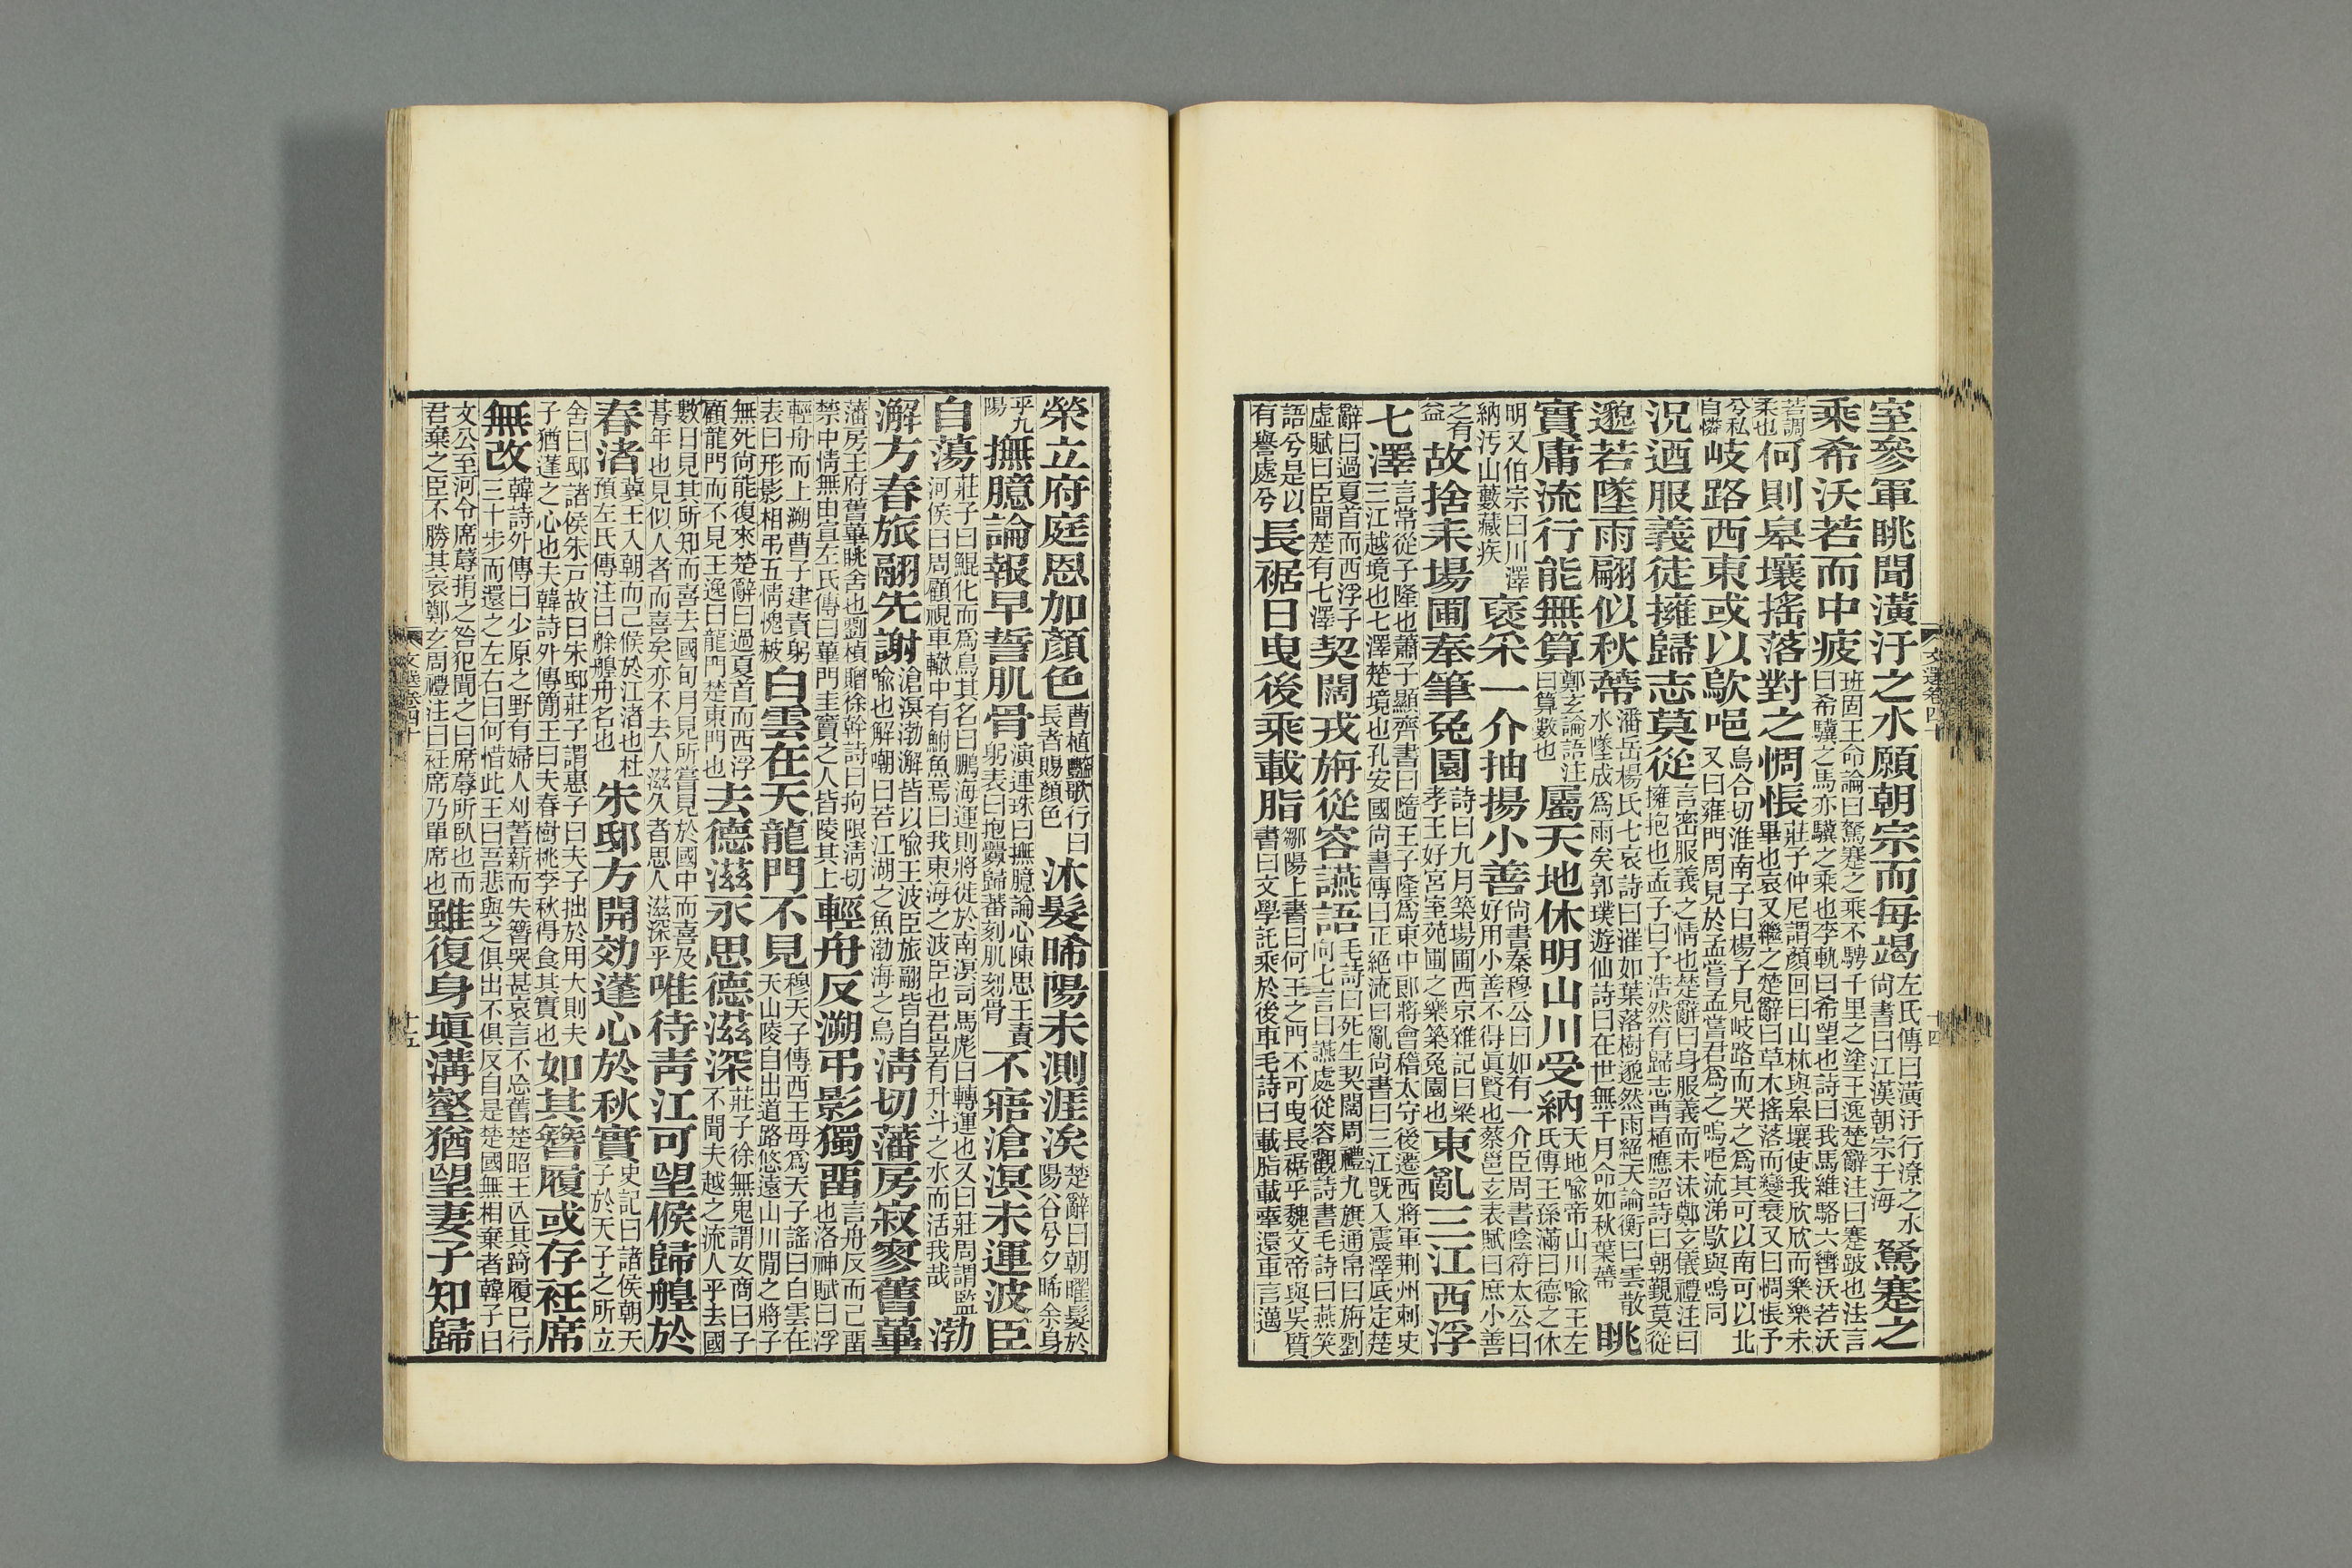 室參軍眺聞潢汙之水願朝宗而每竭左氏傳曰潢汙行潦之水尚書曰江漢朝宗于海駑蹇之
乘希沃若而中疲班固王命論曰駑蹇之乘不騁千里之塗王逸楚辭注曰蹇跛也法言曰希驥之馬亦驥之乘也李軌曰希望也詩曰我馬維駱六轡沃若沃
若調柔也何則皋壤搖落對之惆悵莊子仲尼謂顏回曰山林與皋壤使我欣欣而樂樂未畢也哀又繼之楚辭曰草木搖落而變衰又曰惆悵予
兮私自憐岐路西東或以歍唈烏合切淮南子曰楊子見岐路而哭之爲其可以南可以北又曰雍門周見於孟嘗孟嘗君爲之嗚唈流涕歍與嗚同
況迺服義徒擁歸志莫從言密服義之情也楚辭曰身服義而未沬鄭玄儀禮注曰擁抱也孟子曰予浩然有歸志曹植應詔詩曰朝覲莫從
邈若墜雨翩似秋蔕潘岳楊氏七哀詩曰漼如葉落樹邈然雨絕天論衡曰雲散水墜成爲雨矣郭璞遊仙詩曰在世無千月命如秋葉蔕眺
實庸流行能無算鄭玄論語注曰算數也屬天地休明山川受納天地喻帝山川喻王左氏傳王孫滿曰德之休
明又伯宗曰川澤納汚山藪藏疾褒采一介抽揚小善尚書秦穆公曰如有一介臣周書陰符太公曰好用小善不得眞賢也蔡邕玄表賦曰庶小善
之有益故捨耒場圃奉筆兔園詩曰九月築場圃西京雜記曰梁孝王好宮室苑囿之樂築兔園也東亂三江西浮
七澤言常從子隆也蕭子顯齊書曰隨王子隆爲東中郎將會稽太守後遷西將軍荆州刺史三江越境也七澤楚境也孔安國尚書傳曰正絕流曰亂尚書曰三江旣入震澤厎定楚
辭曰過夏首而西浮子虛賦曰臣聞楚有七澤契闊戎旃從容讌語毛詩曰死生契闊周禮九旗通帛曰旃劉向七言曰讌處從容觀詩書毛詩曰燕笑
語兮是以有譽處兮長裾日曳後乘載脂鄒陽上書曰何王之門不可曳長裾乎魏文帝與吳質書曰文學託乘於後車毛詩曰載脂載舝還車言邁
文選卷四十
十四
榮立府庭恩加顏色曹植豔歌行曰長者賜顏色沐髮晞陽未測涯涘楚辭曰朝曜髮於陽谷兮夕晞余身
乎九陽撫臆論報早誓肌骨演連珠曰撫臆論心陳思王責躬表曰抱舋歸蕃刻肌刻骨不寤滄溟未運波臣
自蕩莊子曰鯤化而爲鳥其名曰鵬海運則將徙於南溟司馬彪曰轉運也又曰莊周謂監河侯曰周顧視車轍中有鮒魚焉曰我東海之波臣也君豈有升斗之水而活我哉渤
澥方春旅翮先謝滄溟渤澥皆以喻王波臣旅翮皆自喻也解嘲曰若江湖之魚渤海之鳥清切藩房寂寥舊蓽
藩房王府舊蓽眺舍也劉楨贈徐幹詩曰拘限清切禁中情無由宣左氏傳曰蓽門圭竇之人皆陵其上輕舟反溯弔影獨留言舟反而己留也洛神賦曰浮
輕舟而上溯曹子建責躬表曰形影相弔五情愧赧白雲在天龍門不見穆天子傳西王母爲天子謠曰白雲在天山陵自出道路悠遠山川閒之將子
無死尚能復來楚辭曰過夏首而西浮顧龍門而不見王逸曰龍門楚東門也去德滋永思德滋深莊子徐無鬼謂女商曰子不聞夫越之流人乎去國
數日見其所知而喜去國旬月見所嘗見於國中而喜及朞年也見似人者而喜矣亦不去人滋久者思人滋深乎唯待青江可望候歸艎於
春渚冀王入朝而己候於江渚也杜預左氏傳注曰艅艎舟名也朱邸方開効蓬心於秋實史記曰諸侯朝天子於天子之所立
舍曰邸諸侯朱戶故曰朱邸莊子謂惠子曰夫子拙於用大則夫子猶蓬之心也夫韓詩外傳簡王曰夫春樹桃李秋得食其實也如其簪履或存衽席
無改韓詩外傳曰少原之野有婦人刈蓍薪而失簪哭甚哀言不忘舊楚昭王亾其踦履已行三十步而還之左右曰何惜此王曰吾悲與之俱出不俱反自是楚國無相棄者韓子曰
文公至河令席蓐捐之咎犯聞之曰席蓐所臥也而君棄之臣不勝其哀鄭玄周禮注曰衽席乃單席也雖復身塡溝壑猶望妻子知歸
文選卷四十
十五